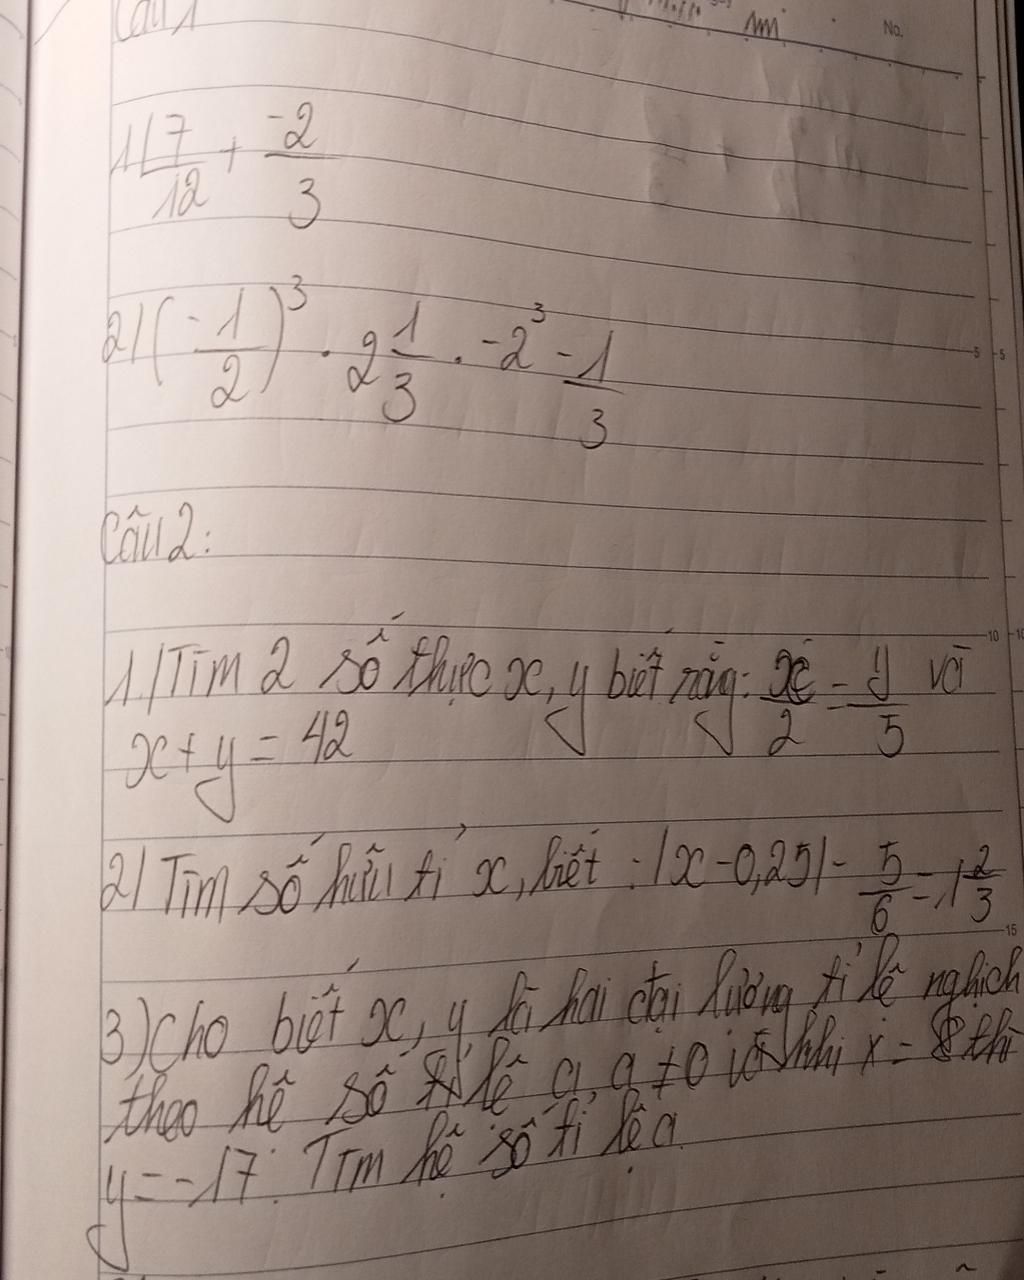 Câu 1
No.
1/ 7/12 + -2/3
2/ (-1/2)^3 . 2 1/3 . -2^3 - 1/3
Câu 2:
1./ Tìm 2 số thực x, y biết rằng: x/2 = y/5 và
x + y = 42
2/ Tìm số hữu tỉ x, biết : |x - 0,25| - 5/6 = 1 2/3
3) Cho biết x, y là hai đại lượng tỉ lệ nghịch
theo hệ số tỉ lệ a, a ≠ 0 và khi x = 8 thì
y = -17. Tìm hệ số tỉ lệ a